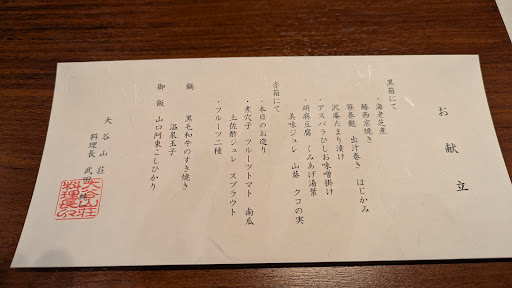 お献立
黒箱にて
・海老芝煮
鰆西京焼き
笹巻麩 出汁巻き はじかみ
沢庵たまり漬け
・アスパラひしお味噌掛け
・胡麻豆腐 くみあげ湯葉
美味ジュレ 山葵 クコの実
赤箱にて
・本日のお造り
・煮穴子 フルーツトマト 南瓜
土佐酢ジュレ スプラウト
・フルーツ二種
鍋
黒毛和牛のすき焼き
温泉玉子
御飯 山口阿東こしひかり
大谷山荘
料理長 武
大谷山荘
料理長